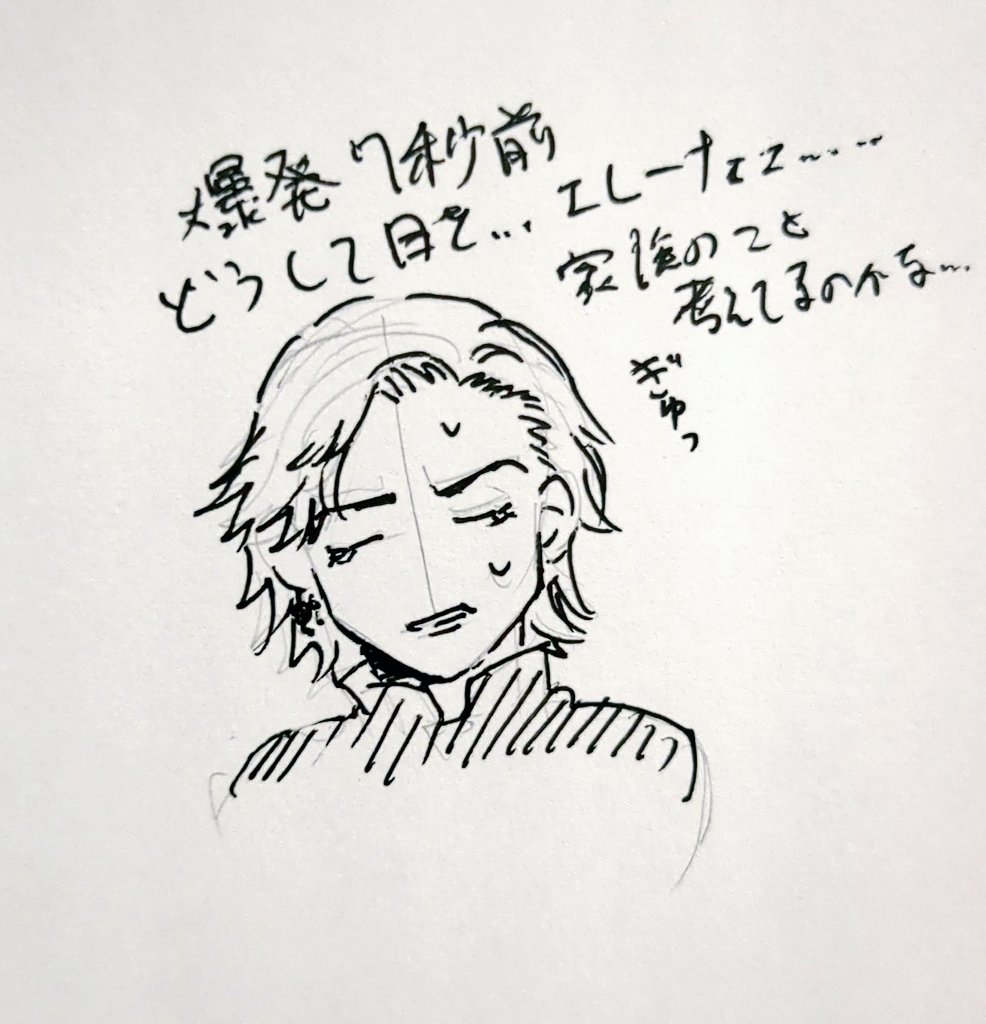 爆発7秒前
どうして目を...
エレーナェェ......
家族のこと
考えてるのかな...
ぎゅっ